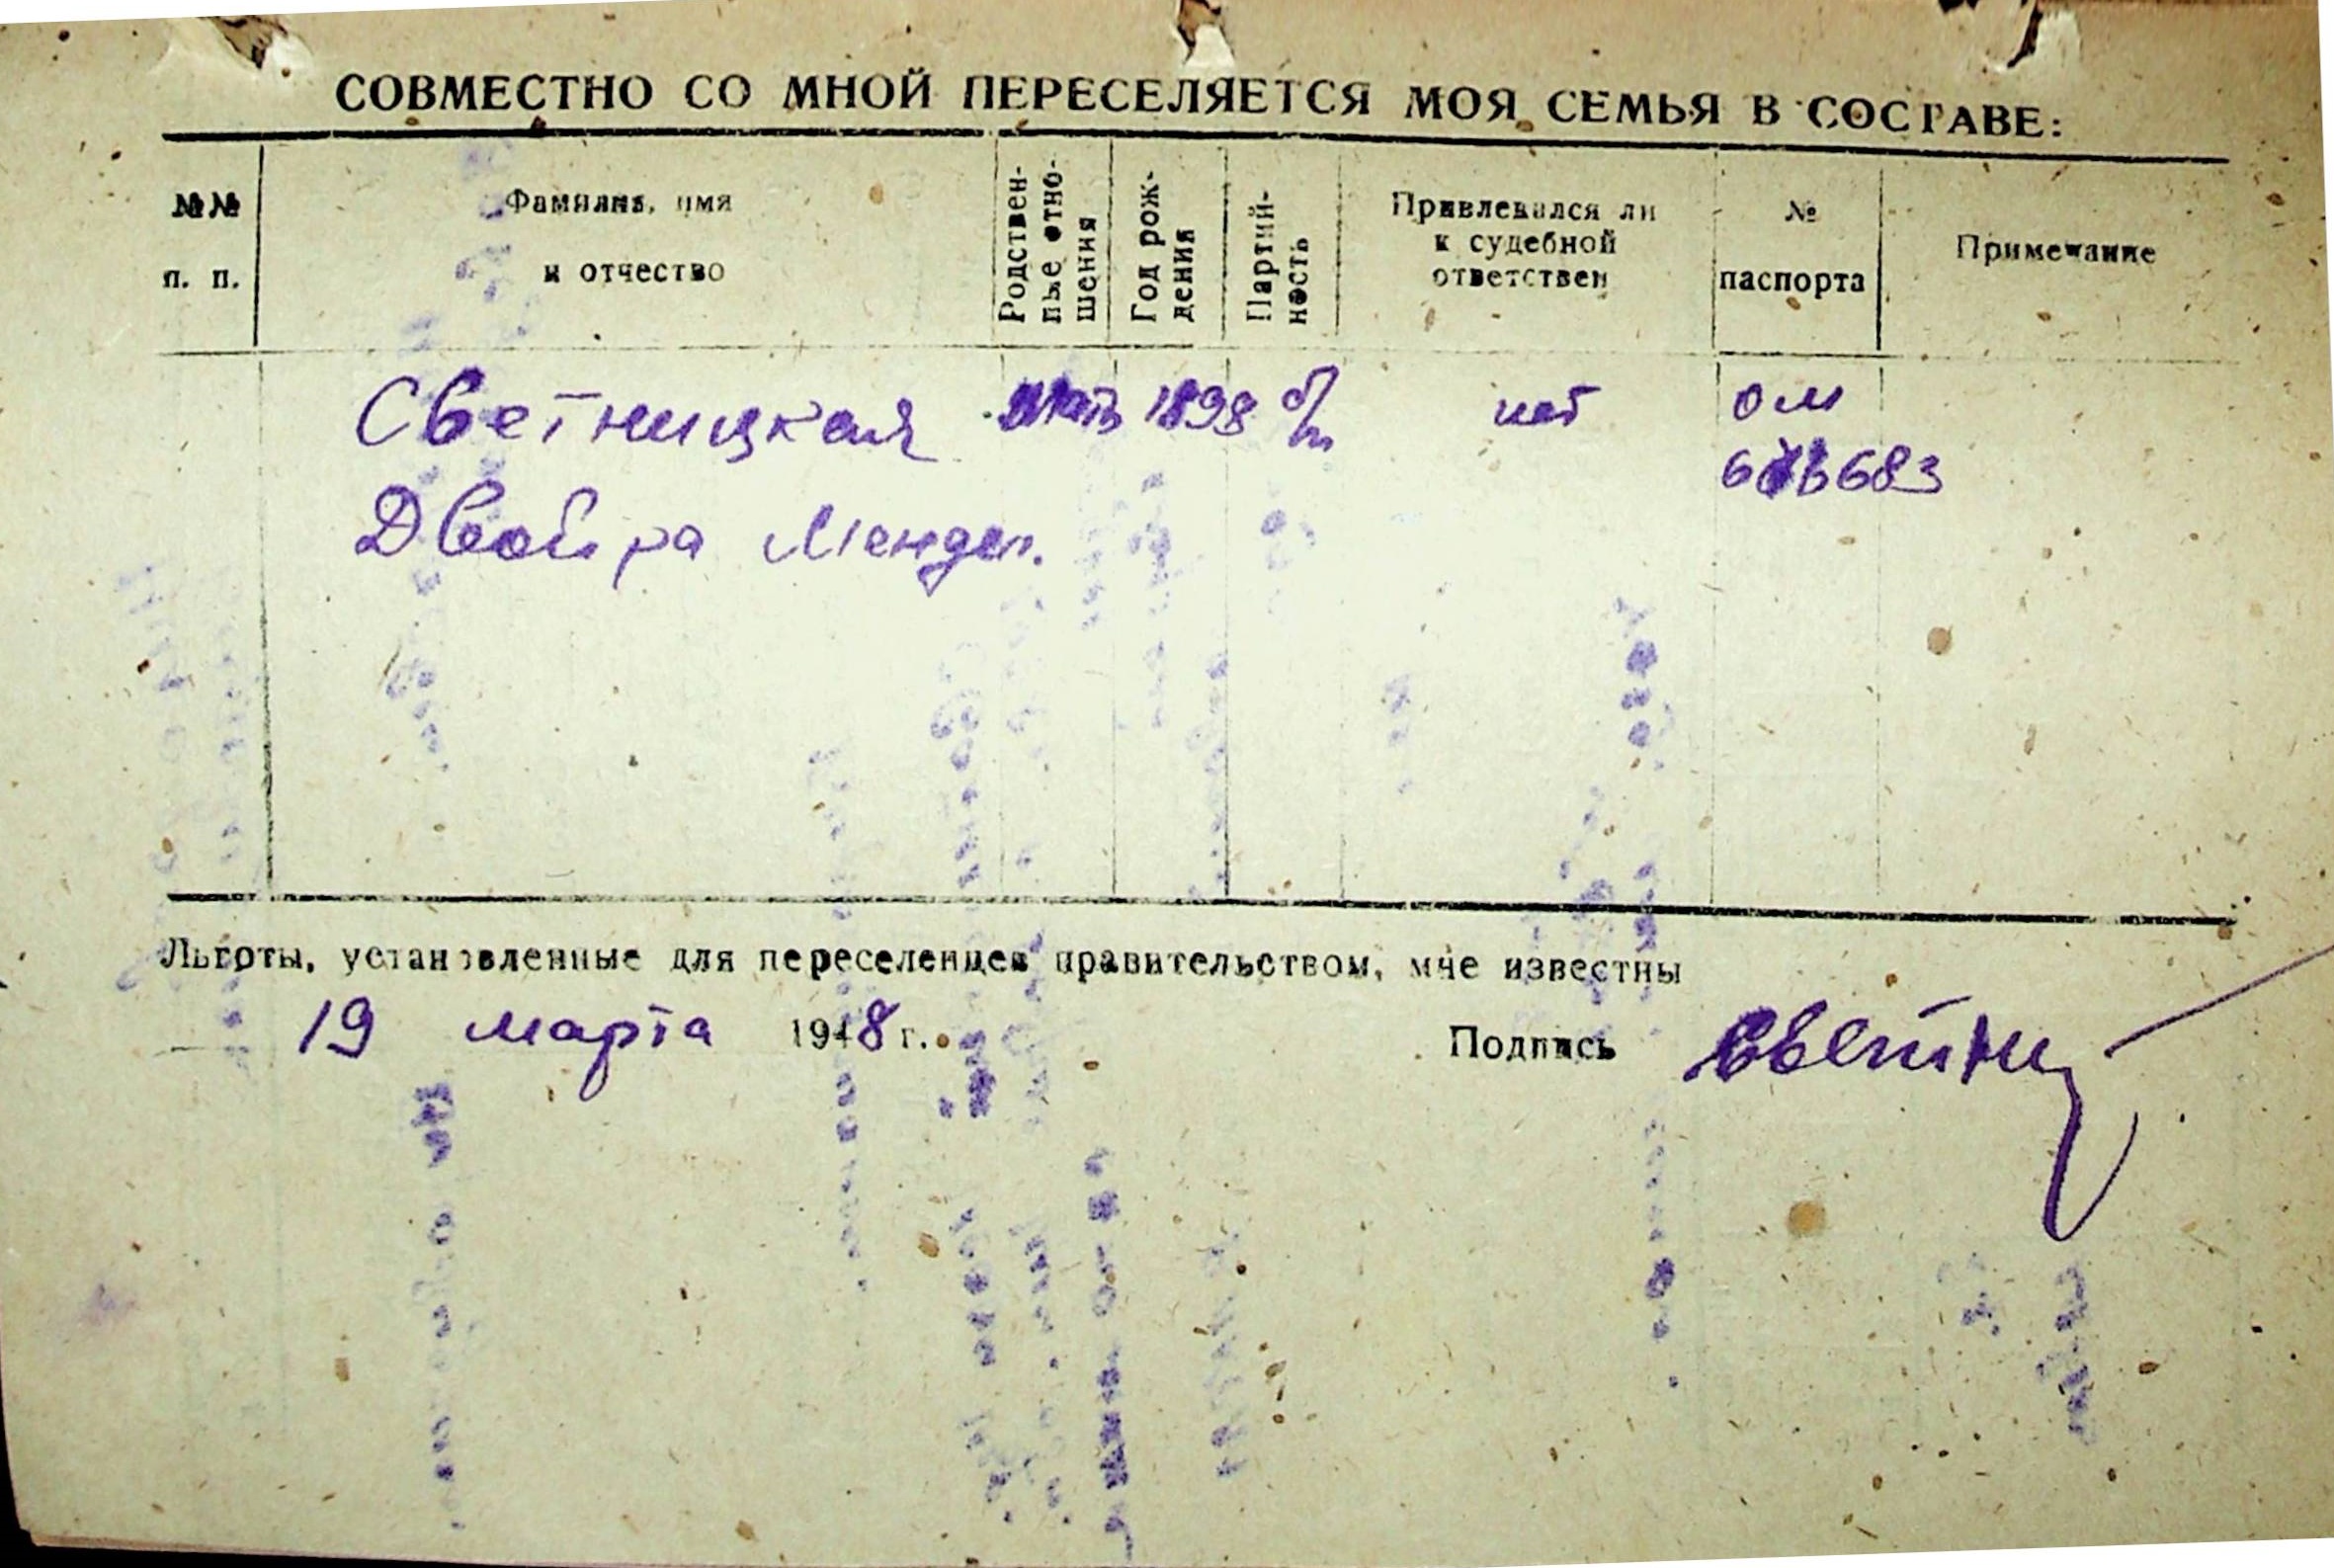 СОВМЕСТНО СО МНОЙ ПЕРЕСЕЛЯЕТСЯ МОЯ СЕМЬЯ В СОСТАВЕ:
№№ п. п.
Фамилия, имя и отчество
Родственные отношения
Год рождения
Партийность
Привлекался ли к судебной ответствен
№ паспорта
Примечание
Светницкая мать 1898 б/п нет ОМ
Двойра Мендел.
Льготы, установленные для переселенцев правительством, мне известны
19 марта 1948 г. Подпись Светниц